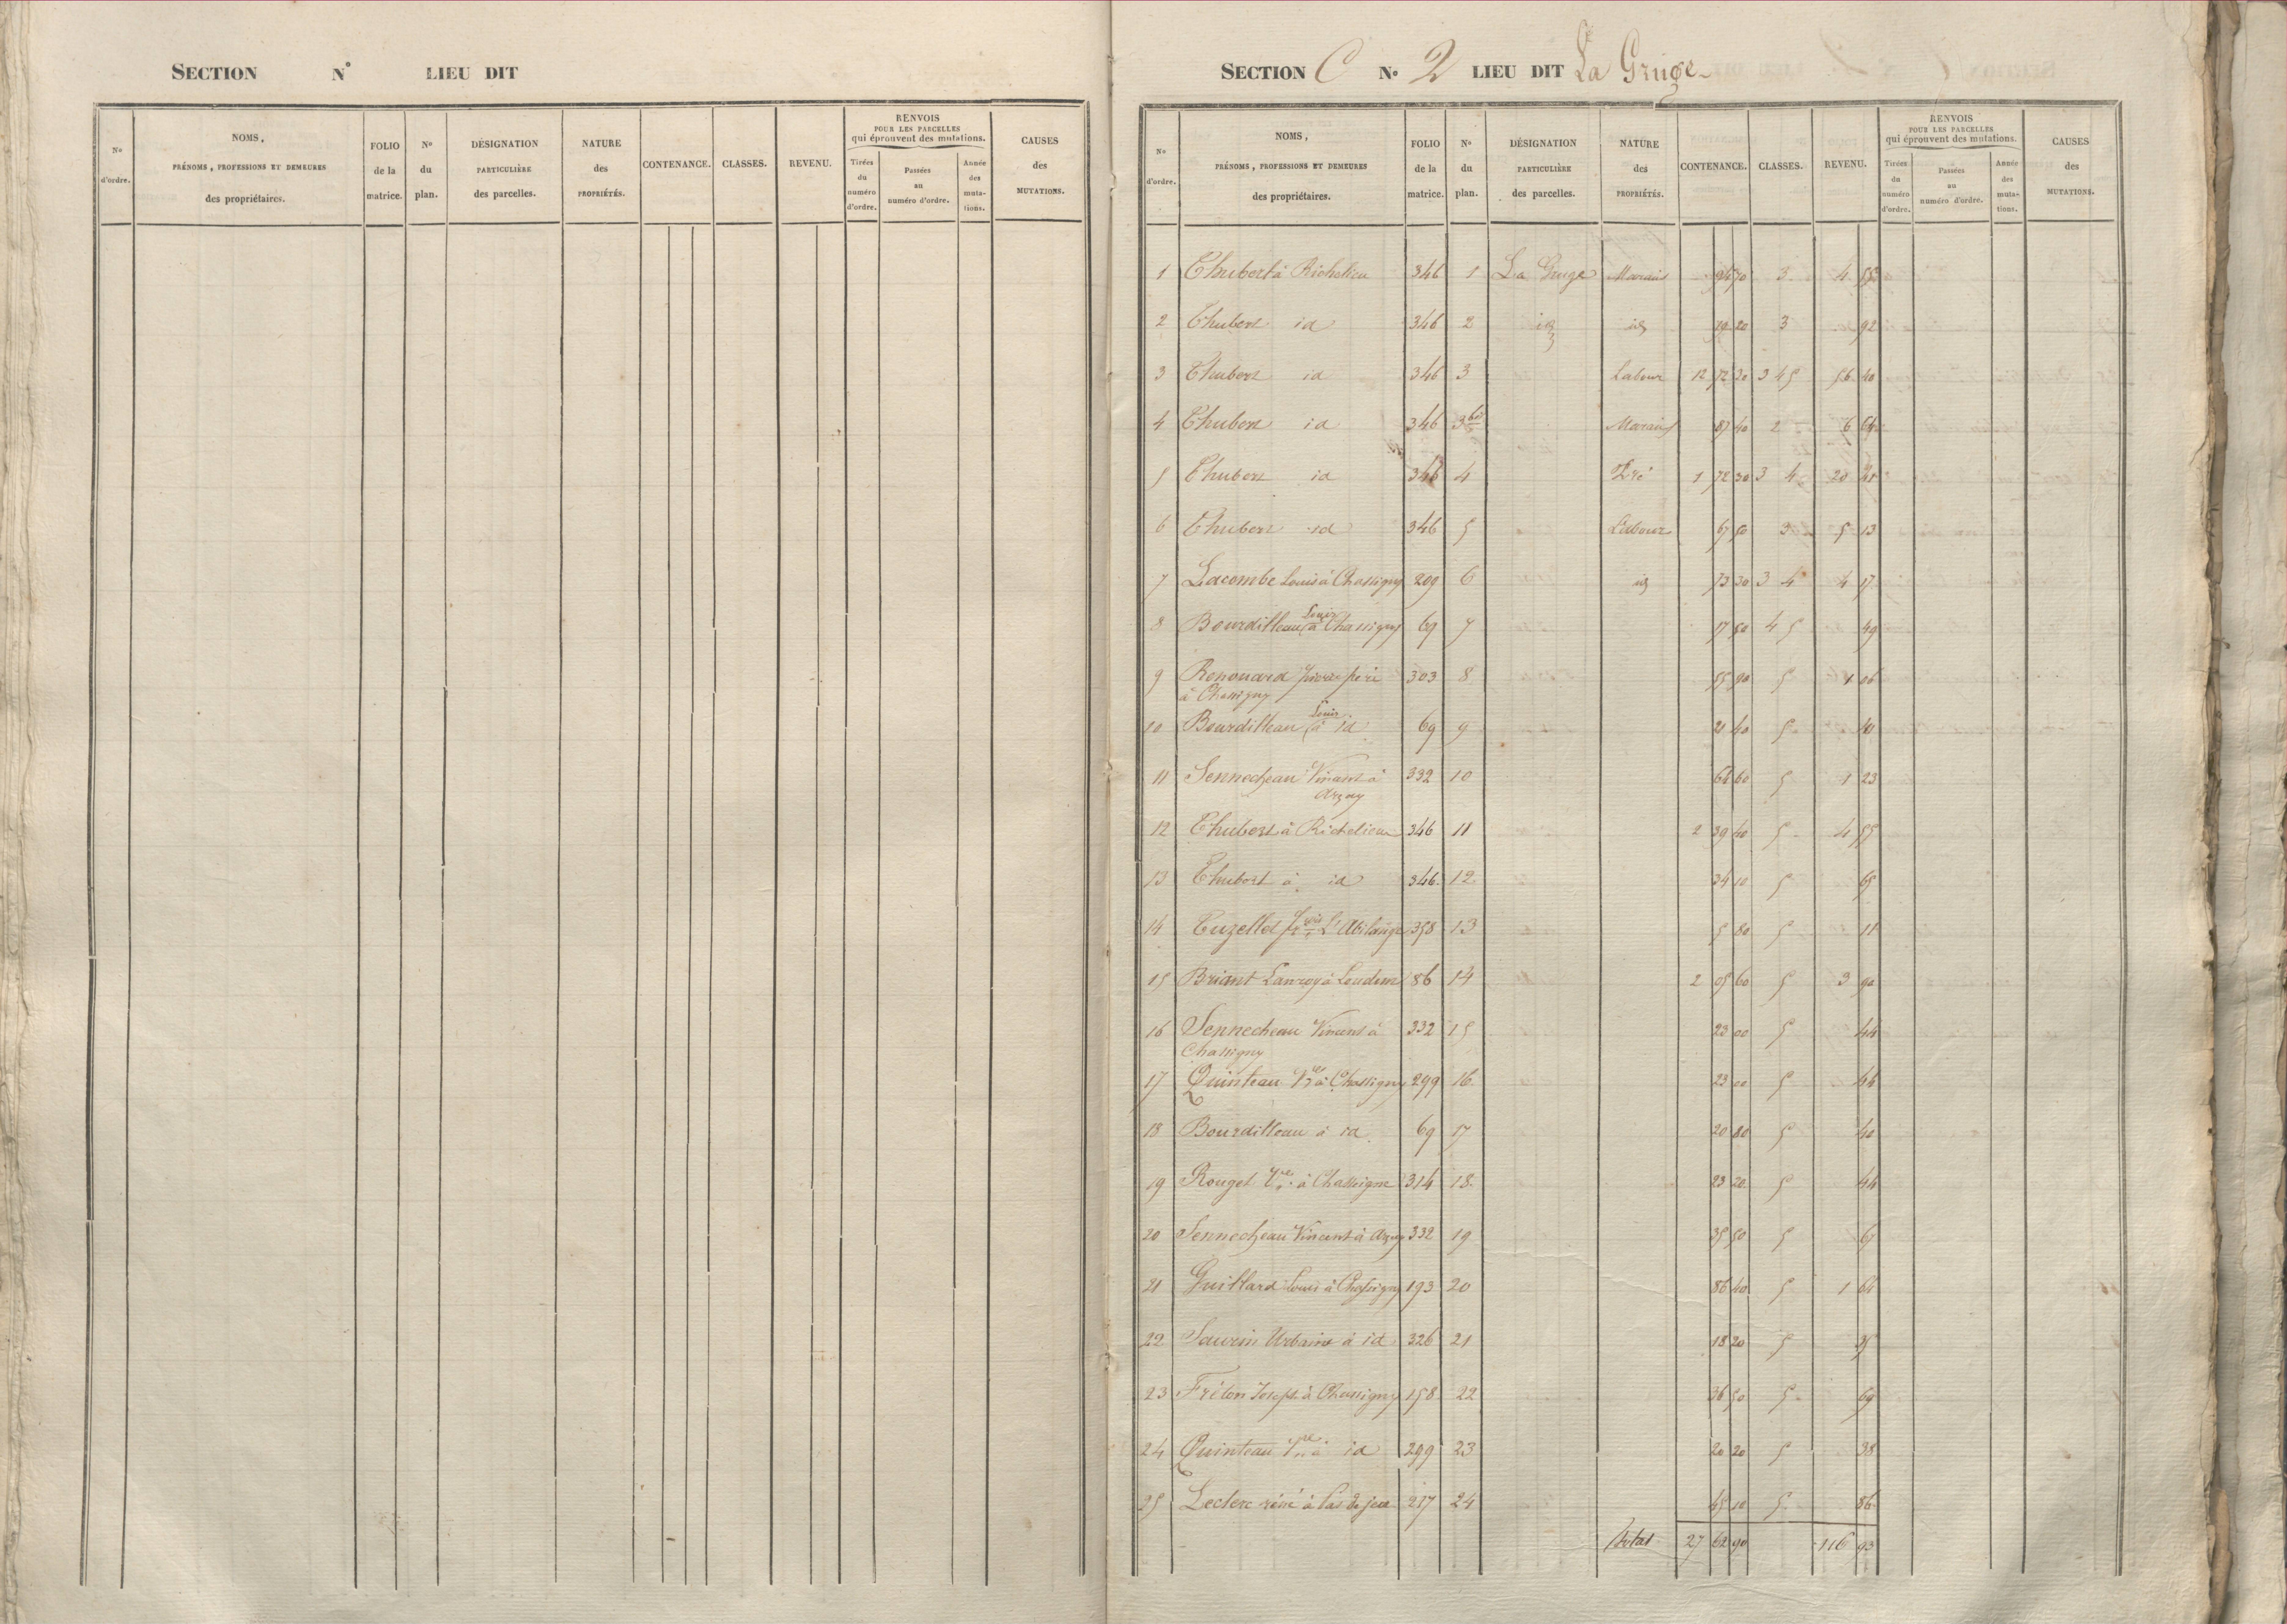 SECTION N° LIEU DIT
N° d'ordre. NOMS, PRÉNOMS, PROFESSIONS ET DEMEURES des propriétaires. FOLIO de la matrice. N° du plan. DÉSIGNATION PARTICULIÈRE des parcelles. NATURE des PROPRIÉTÉS. CONTENANCE. CLASSES. REVENU. RENVOIS POUR LES PARCELLES qui éprouvent des mutations. Tirées du numéro d'ordre. Passées au numéro d'ordre. Année des mutations. CAUSES des MUTATIONS.
SECTION C N° 2 LIEU DIT La Gruge
N° d'ordre. NOMS, PRÉNOMS, PROFESSIONS ET DEMEURES des propriétaires. FOLIO de la matrice. N° du plan. DÉSIGNATION PARTICULIÈRE des parcelles. NATURE des PROPRIÉTÉS. CONTENANCE. CLASSES. REVENU. RENVOIS POUR LES PARCELLES qui éprouvent des mutations. Tirées du numéro d'ordre. Passées au numéro d'ordre. Année des mutations. CAUSES des MUTATIONS.
1 Thubert à Richelieu 346 1 La Gruge Marais 94 70 3 4
2 Thubert id 346 2 id id 20 3 92
3 Thubert id 346 3 Labour 12 72 30 3 4 5 56 40
4 Thubert id 346 3 bis Marais 87 40 2 6
5 Thubert id 346 4 Pré 1 72 30 3 4 20
6 Thubert id 346 5 Labour 67 50 3 5 13
7 Lacombe Louis à Chassigny 209 6 id 73 30 3 4 4 17
8 Bourdilleau Louis à Chassigny 69 7 17 50 4 5 49
9 Renouard Pierre père à Chassigny 303 8 55 90 5 1 06
10 Bourdilleau Louis à id 69 9 21 40 5 41
11 Sennecheau Vincent à Arzay 332 10 64 60 5 1 23
12 Thubert à Richelieu 346 11 2 39 40 5 4 55
13 Thubert à id 346 12 34 10 5 65
14 Tuzellet 358 13 5 80 5 11
15 Briant Lanroy à Loudun 86 14 2 05 60 5 3 90
16 Sennecheau Vincent à Chassigny 332 15 23 00 5 44
17 Quinteau à Chassigny 299 16 23 00 5 44
18 Bourdilleau à id 69 17 20 80 5 40
19 Rouget Ve à Chassigne 314 18 23 20 5 44
20 Sennecheau Vincent à Arzay 332 19 35 50 5 67
21 Guillard Louis à Chassigny 193 20 86 40 5 1 64
22 Saurin Urbain à id 326 21 18 20 5 35
23 Fréton Joseph à Chassigny 158 22 36 50 5 69
24 Quinteau à id 299 23 20 20 5 38
25 Leclerc réné à Pas de jeu 217 24 45 10 5 86
Total 27 62 90 116 93